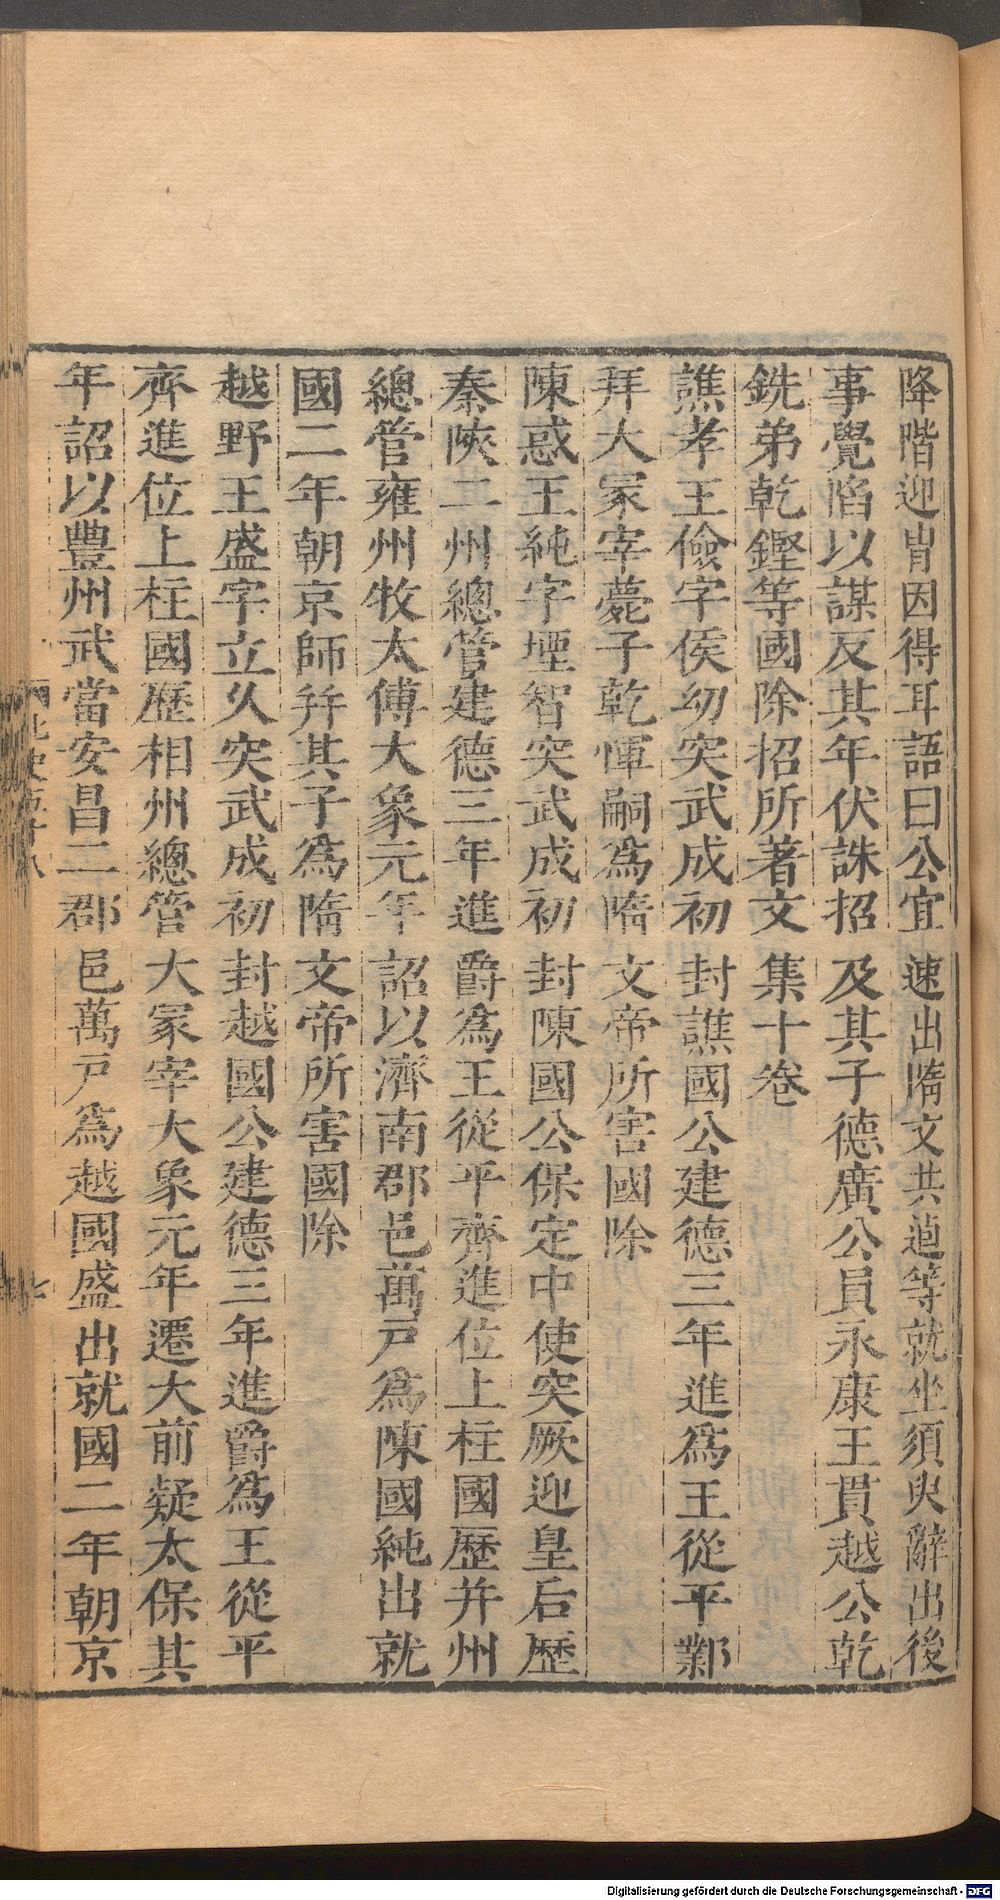 降階迎冑因得耳語曰公宜速出隋文共逌等就坐須臾辭出後
事覺陷以謀反其年伏誅招及其子德廣公員永康王貫越公乾
銑弟乾鏗等國除招所著文集十卷
譙孝王儉字侯幼突武成初封譙國公建德三年進為王從平鄴
拜大冢宰薨子乾惲嗣為隋文帝所害國除
陳惑王純字堙智突武成初封陳國公保定中使突厥迎皇后歷
秦陜二州總管建德三年進爵為王從平齊進位上柱國歷并州
總管雍州牧太傅大象元年詔以濟南郡邑萬戸為陳國純出就
國二年朝京師并其子為隋文帝所害國除
越野王盛字立久突武成初封越國公建德三年進爵為王從平
齊進位上柱國歷相州總管大冢宰大象元年遷大前疑太保其
年詔以豊州武當安昌二郡邑萬戸為越國盛出就國二年朝京
七
Digitalisierung gefördert durch die Deutsche Forschungsgemeinschaft - DFG